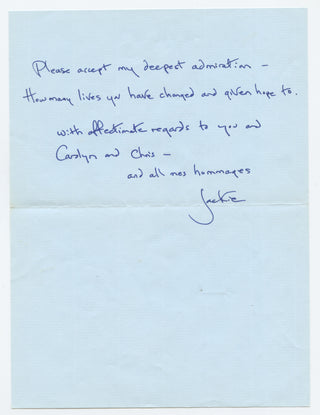 Please accept my deepest admiration –
How many lives you have changed and given hope to.
with affectionate regards to you and
Carolyn and Chris –
and all mes hommages
Jackie